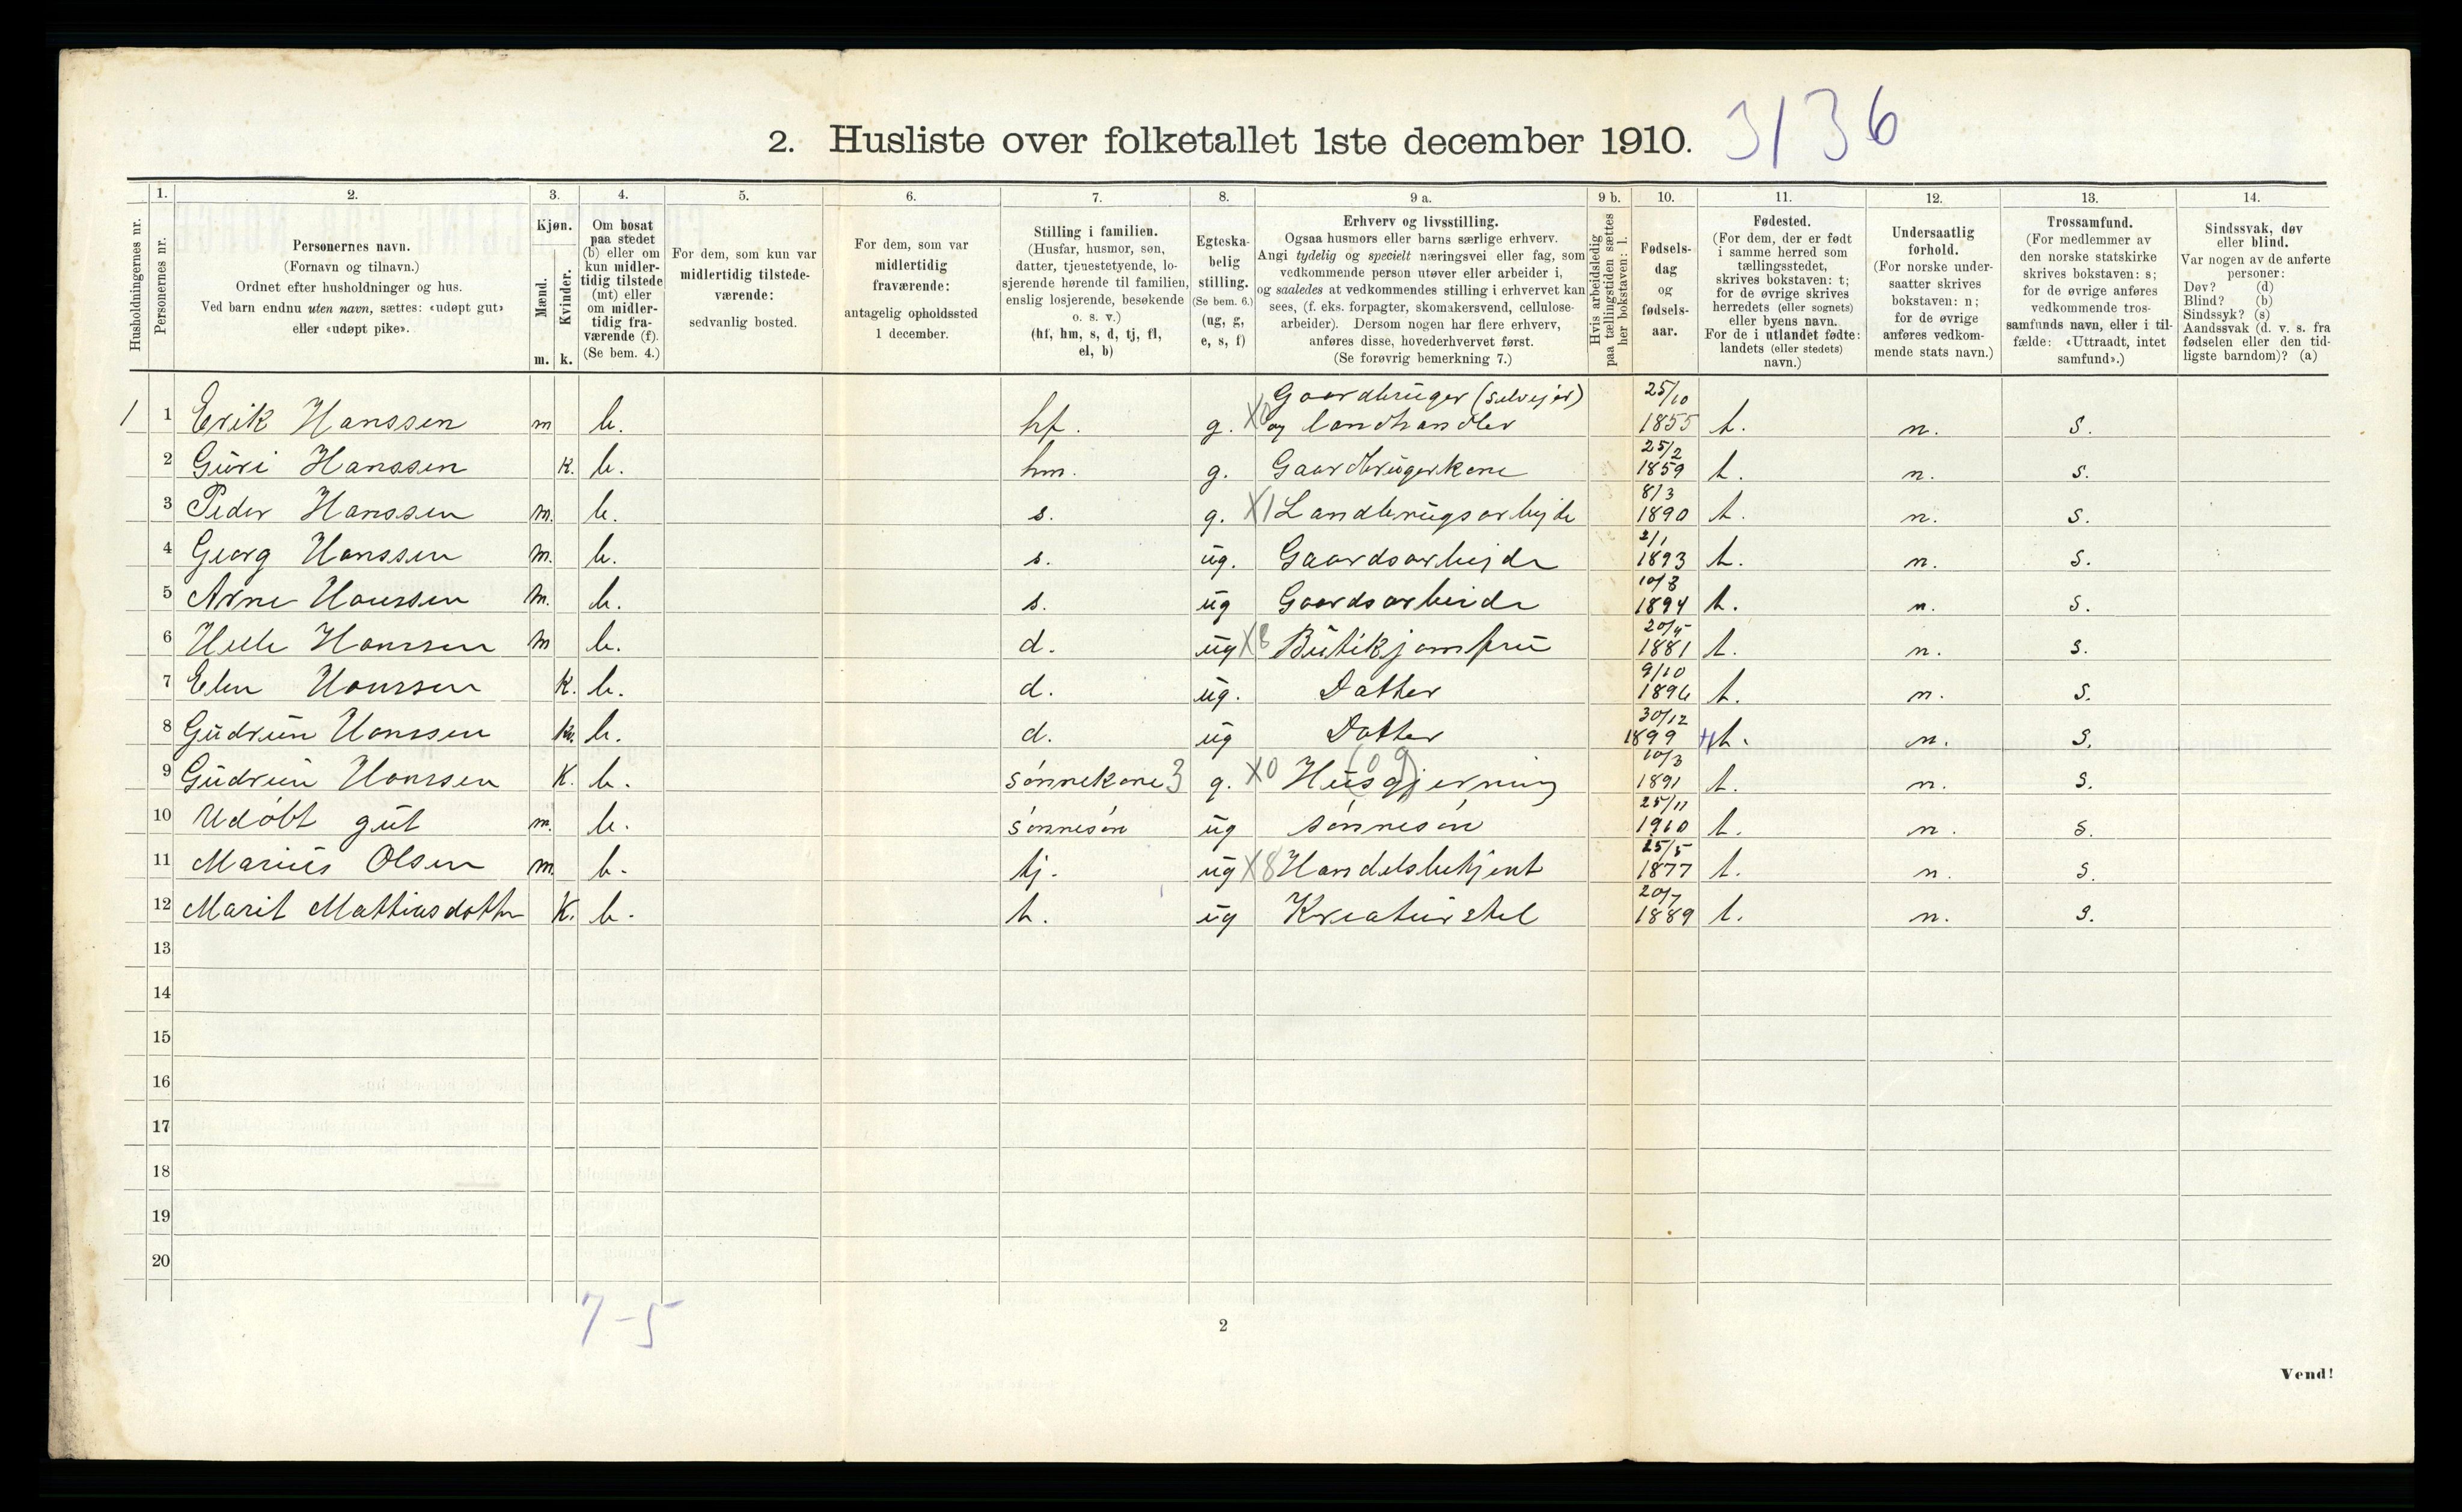 2. Husliste over folketallet 1ste december 1910. 3136
1. 2. 3. 4. 5. 6. 7. 8. 9 a. 9 b. 10. 11. 12. 13. 14.
Husholdningernes nr.
Personernes nr.
Personernes navn.
(Fornavn og tilnavn.)
Ordnet efter husholdninger og hus.
Ved barn endnu uten navn, sættes: «udøpt gut»
eller «udøpt pike».
Kjøn.
Mænd.
Kvinder.
m. k.
Om bosat
paa stedet
(b) eller om
kun midler-
tidig tilstede
(mt) eller
om midler-
tidig fra-
værende (f).
(Se bem. 4.)
For dem, som kun var
midlertidig tilstede-
værende:
sedvanlig bosted.
For dem, som var
midlertidig
fraværende:
antagelig opholdssted
1 december.
Stilling i familien.
(Husfar, husmor, søn,
datter, tjenestetyende, lo-
sjerende hørende til familien,
enslig losjerende, besøkende
o. s. v.)
(hf, hm, s, d, tj, fl,
el, b)
Egteska-
belig
stilling.
(Se bem. 6.)
(ug, g,
e, s, f)
Erhverv og livsstilling.
Ogsaa husmors eller barns særlige erhverv.
Angi tydelig og specielt næringsvei eller fag, som
vedkommende person utøver eller arbeider i,
og saaledes at vedkommendes stilling i erhvervet kan
sees, (f. eks. forpagter, skomakersvend, cellulose-
arbeider). Dersom nogen har flere erhverv,
anføres disse, hovederhvervet først.
(Se forøvrig bemerkning 7.)
Hvis arbeidsledig
paa tællingstiden sættes
her bokstaven: l.
Fødsels-
dag
og
fødsels-
aar.
Fødested.
(For dem, der er født
i samme herred som
tællingsstedet,
skrives bokstaven: t;
for de øvrige skrives
herredets (eller sognets)
eller byens navn.
For de i utlandet fødte:
landets (eller stedets)
navn.)
Undersaatlig
forhold.
(For norske under-
saatter skrives
bokstaven: n;
for de øvrige
anføres vedkom-
mende stats navn.)
Trossamfund.
(For medlemmer av
den norske statskirke
skrives bokstaven: s;
for de øvrige anføres
vedkommende tros-
samfunds navn, eller i til-
fælde: «Uttraadt, intet
samfund».)
Sindssvak, døv
eller blind.
Var nogen av de anførte
personer:
Døv? (d)
Blind? (b)
Sindssyk? (s)
Aandssvak (d. v. s. fra
fødselen eller den tid-
ligste barndom)? (a)
Gaardbruger (selvejer) 25/10
1 1 Erik Hanssen m b. hf. g. X0 og landhandler 1855 t. n. s.
25/2
2 Guri Hanssen k. b. hm. g. Gaardbrugerkone 1859 t. n. s.
8/3
3 Peder Hanssen m. b. s. g. X1 Landbrugsarbejde 1890 t. n. s.
2/1
4 Georg Hanssen m. b. s. ug. Gaardsarbejde 1893 t. n. s.
10/3
5 Arne Hanssen m. b. s. ug Gaardsarbeide 1894 t. n. s.
20/5
6 Helle Hanssen m b. d. ug X8 Butikjomfru 1881 t. n. s.
9/10
7 Elen Hanssen K. b. d. ug. Datter 1896 t. n. s.
30/12
8 Gudrun Hanssen K. b. d. ug Datter 1899 t. n. s.
10/3
9 Gudrun Hanssen K. b. sønnekone 3 g. X0 Husgjerning (09) 1891 t. n. s.
25/11
10 Udøbt gut m. b. sønnesøn ug sønnesøn 1910 t. n. s.
25/5
11 Marius Olsen m. b. tj. ug X8 Handelsbetjent 1877 t. n. s.
20/7
12 Marit Mathiasdotter K. b. t. ug Kreaturstel 1889 t. n. s.
13
14
15
16
17
18
19
20
7-5
2
Vend!